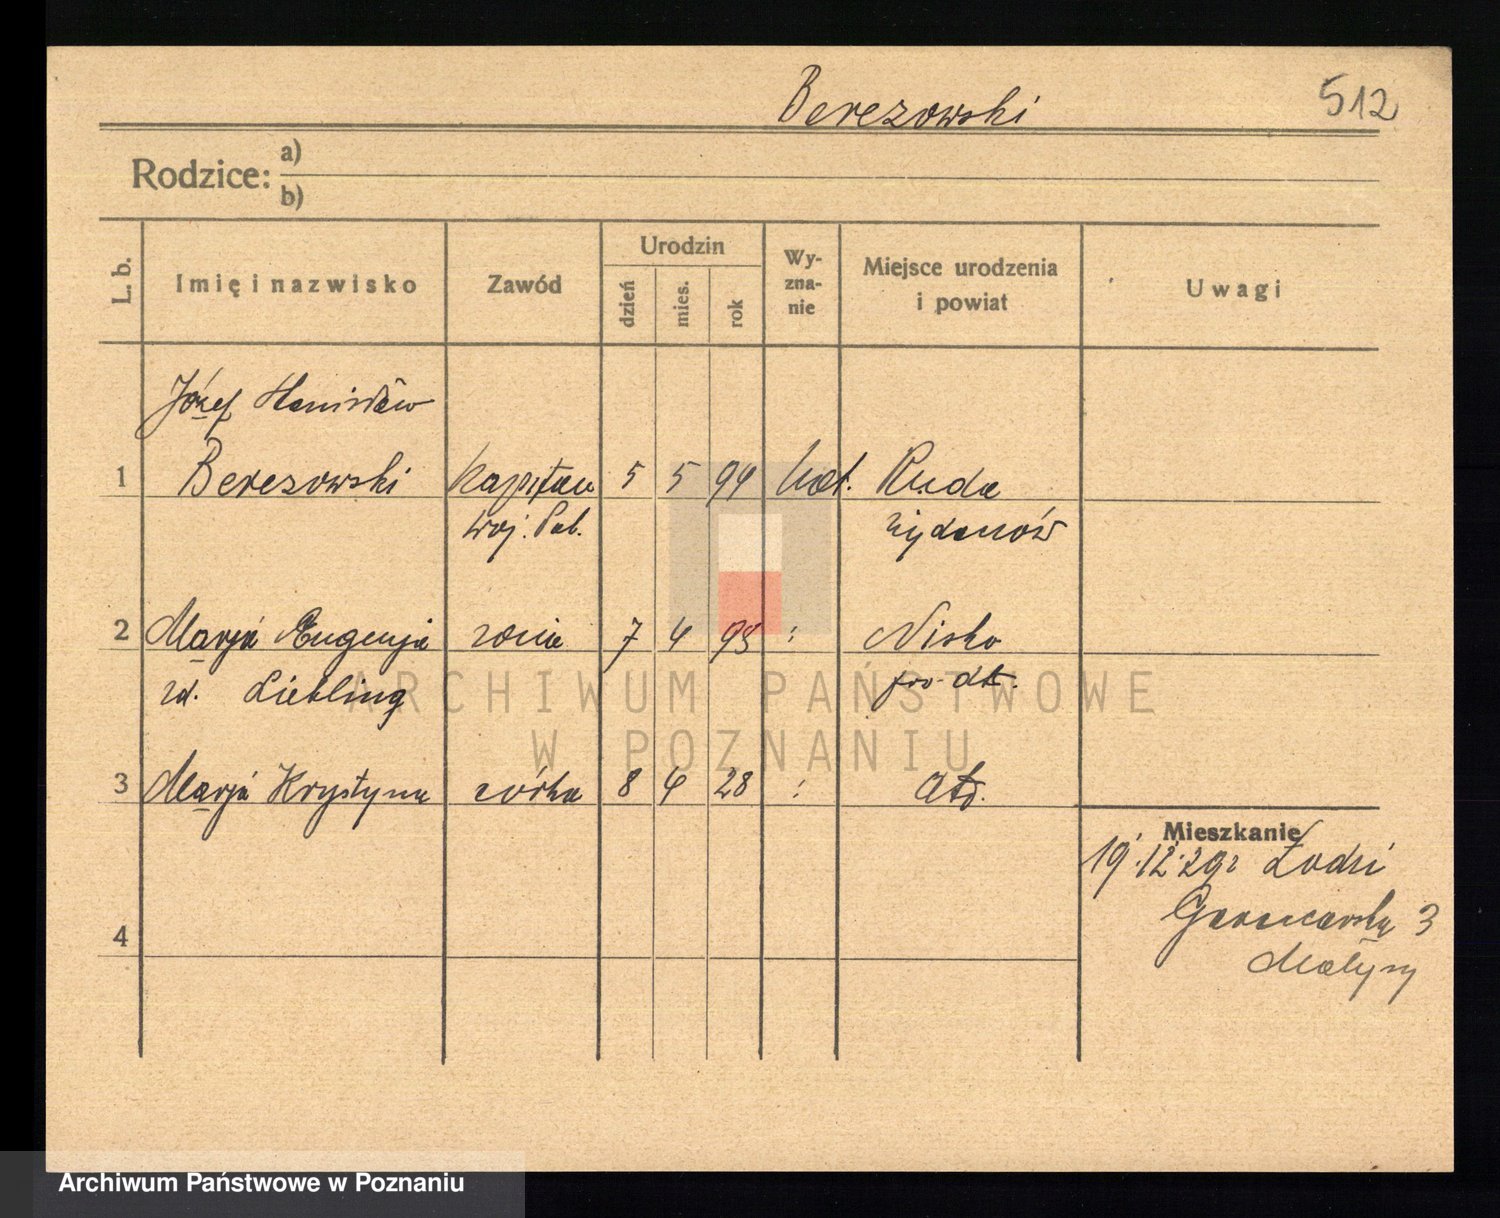 Berezowski
512
Rodzice:
a)
b)
L. b.
Imię i nazwisko
Zawód
Urodzin
dzień
mies.
rok
Wy-
zna-
nie
Miejsce urodzenia
i powiat
Uwagi
Józef Stanisław
1 Berezowski kapitan 5 5 94 kat. Ruda
woj. Pol.
2 Marja Eugenja żona 7 4 98 : Nisko
zd. Liebling
3 Marja Krystyna córka 8 4 28 :
Mieszkanie
19.12.29r Łodzi
Garncarska 3
4
ARCHIWUM PAŃSTWOWE
W POZNANIU
Archiwum Państwowe w Poznaniu